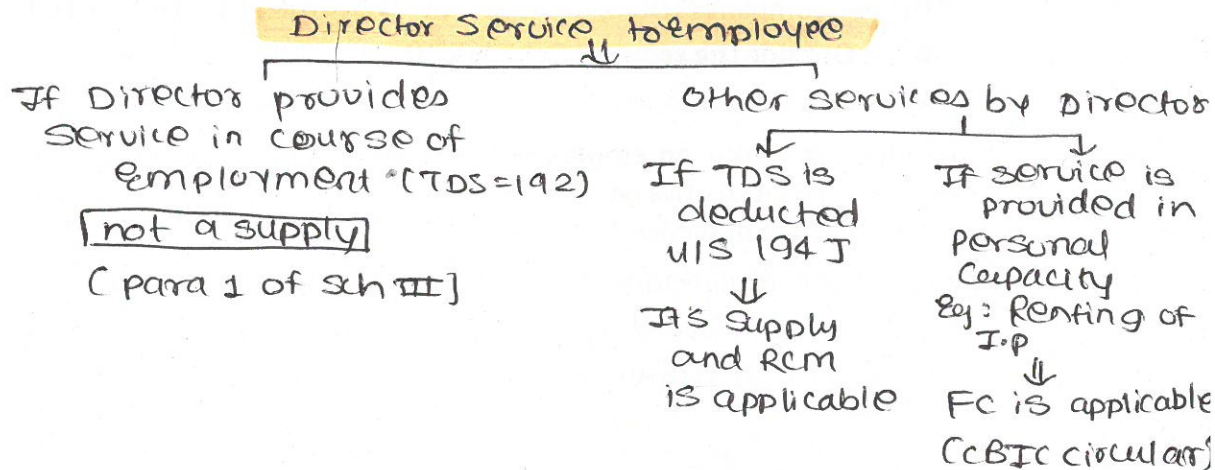 Director Service to employee
If Director provides
Service in course of
employment (TDS=192)
not a supply
(para 1 of sch III]
Other services by Director
If TDS is
deducted
u/s 194J
It's Supply
and RCM
is applicable
If service is
provided in
personal
Capacity
Eg: Renting of
I.P
FC is applicable
(CBIC circular)